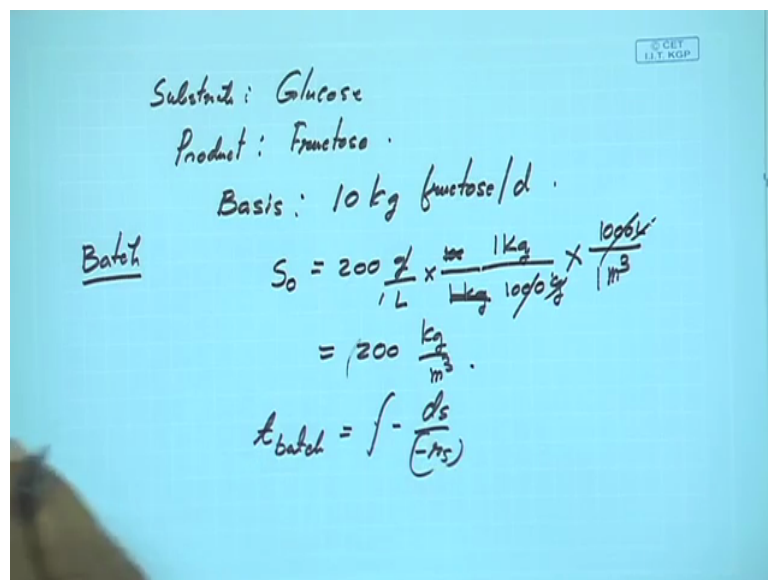 © CET
I.I.T. KGP
Substrate: Glucose
Product: Fructose.
Basis: 10 kg fructose/d.
Batch
S₀ = 200 g/1 L × 1 kg/1000 g × 1000 L/1 m³
= 200 kg/m³.
t batch = ∫ - ds/(-rs)